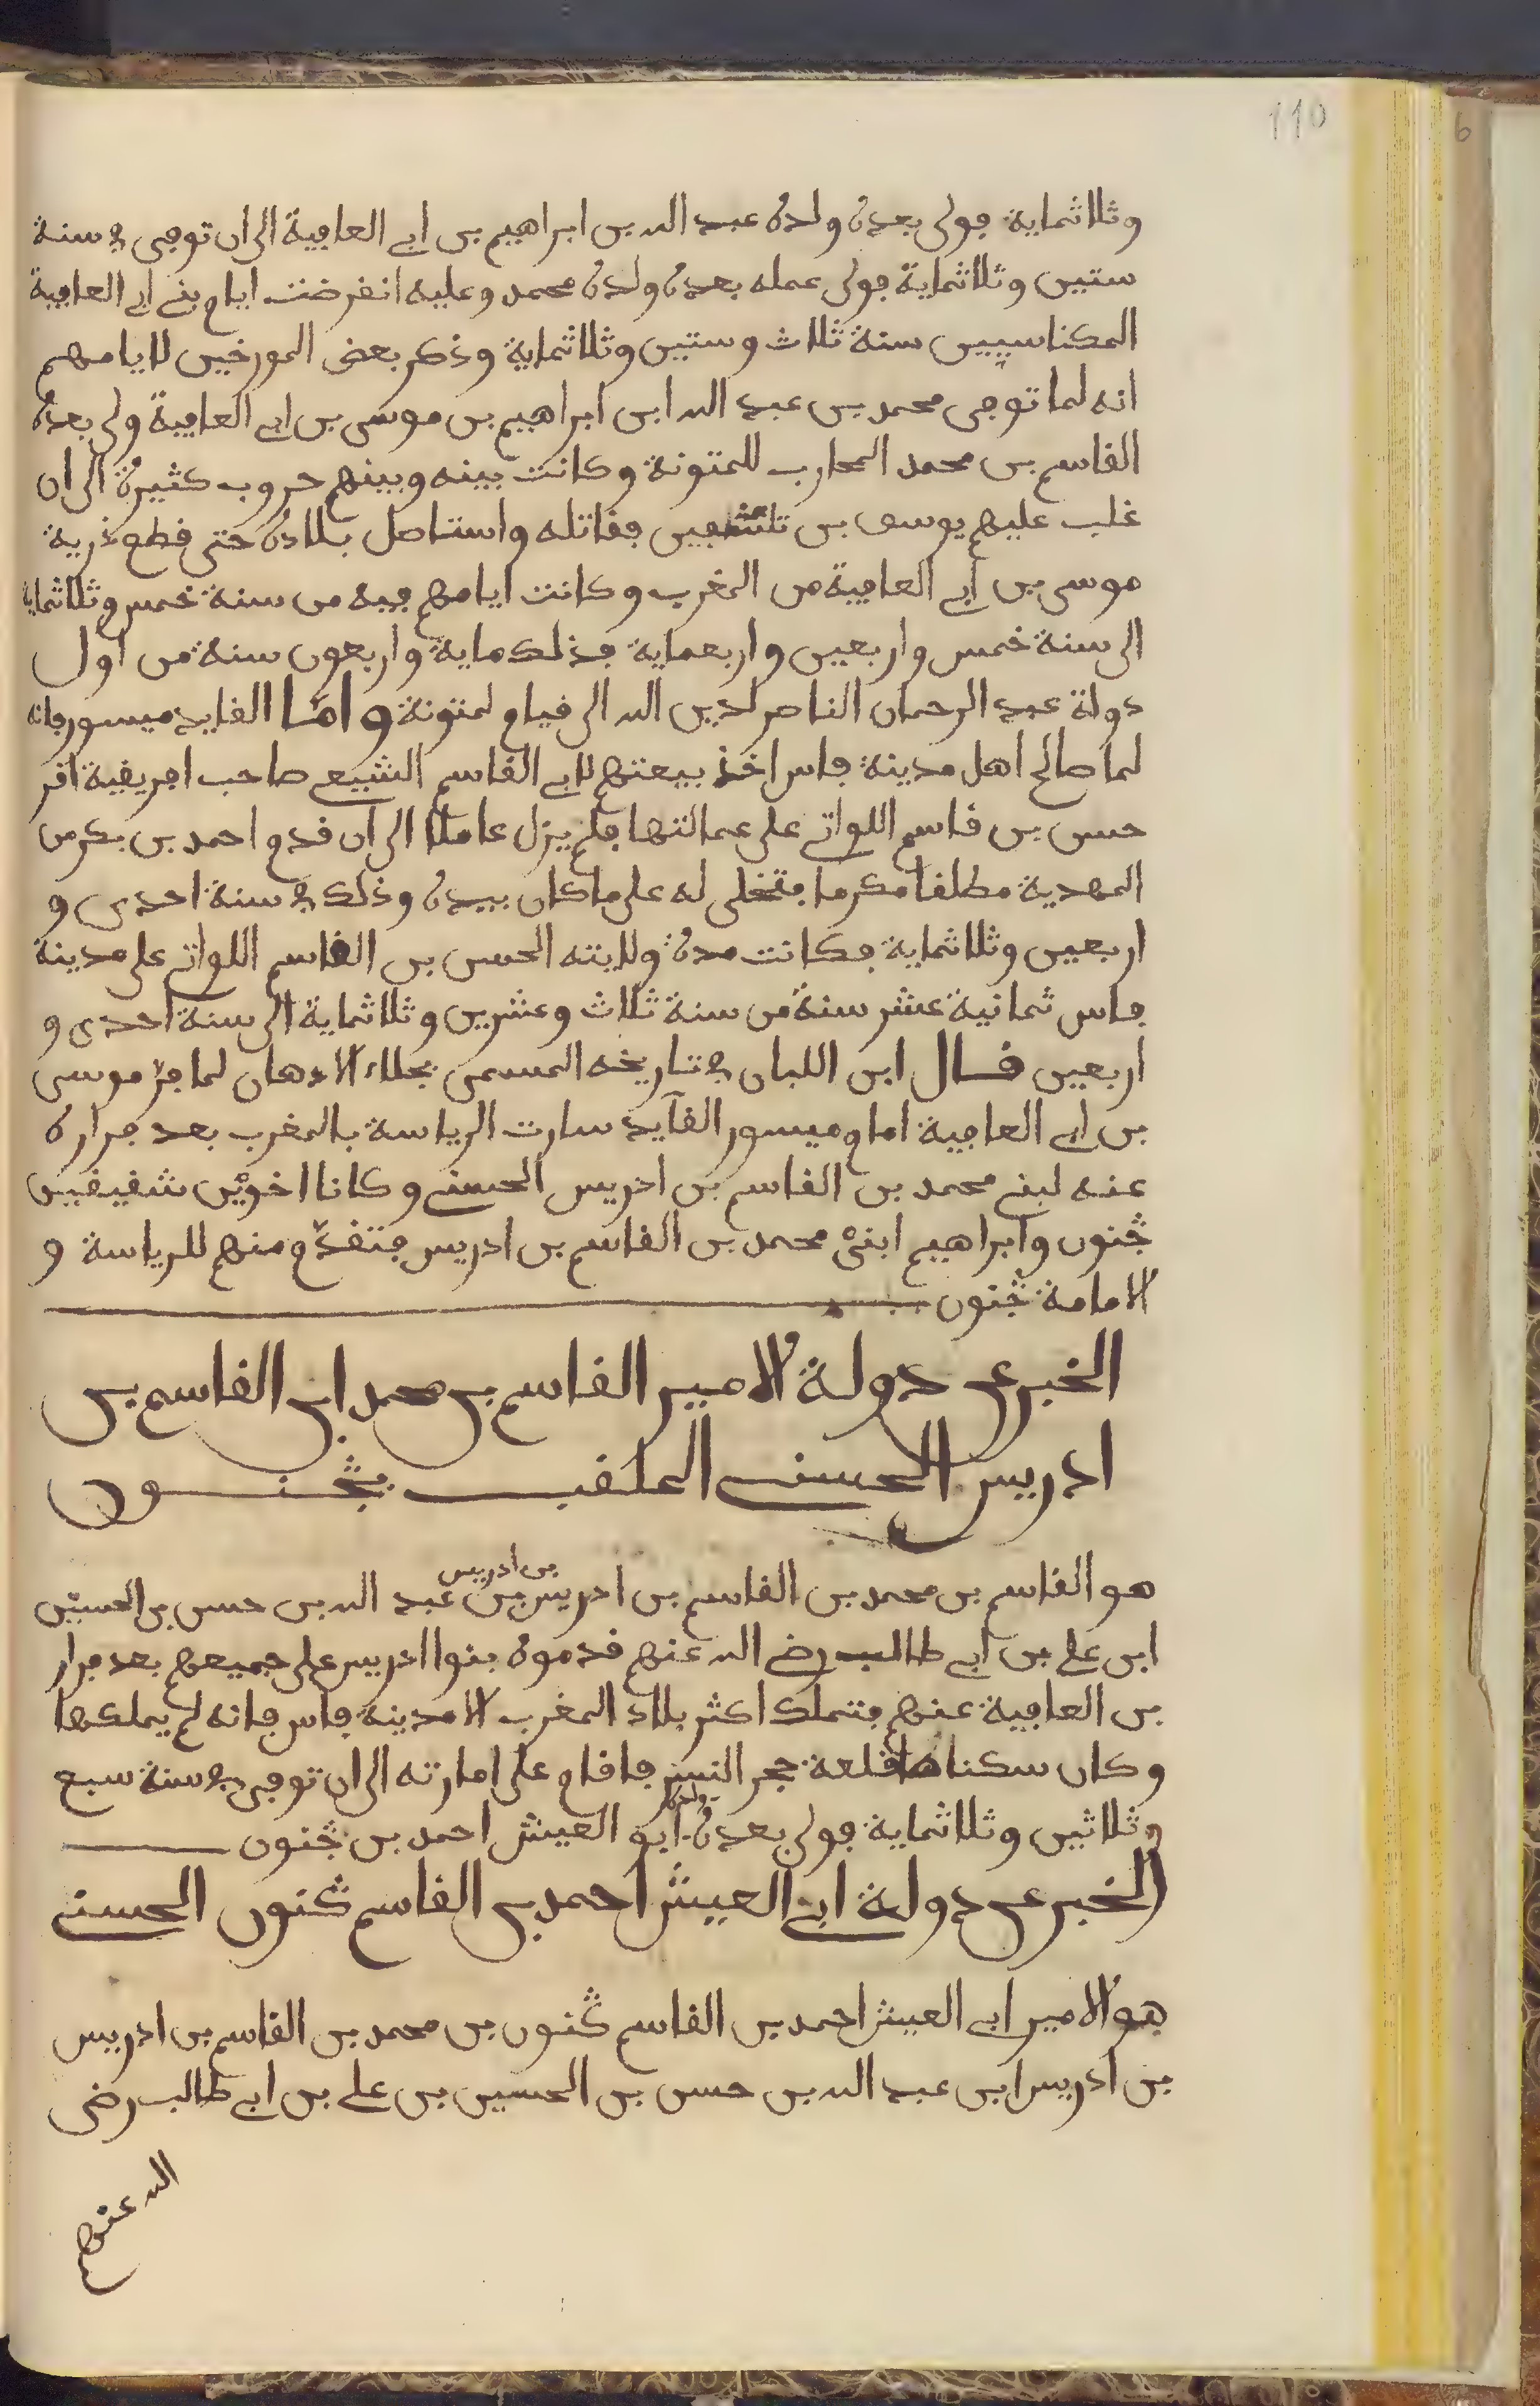 110
6
وثلاثماية فولى بعده ولده عبد الله بن ابراهيم بن ابي العافية الى ان توفي في سنة
ستين وثلاثماية فولى عمله بعده ولده محمد وعليه انقرضت ايام بني ابي العافية
المكناسيين سنة ثلاث وستين وثلاثماية وذكر بعض المورخين لايامهم
انه لما توفى محمد بن عبد الله ابن ابراهيم بن موسى بن ابي العافية ولى بعده
القاسم بن محمد المحارب للمتونة وكانت بينه وبينهم حروب كثيرة الى ان
غلب عليهم يوسف بن تاشفين فقاتله واستاصل بلاده حتى قطع ذرية
موسى بن ابي العافية من المغرب وكانت ايامهم فيه من سنة خمس وثلاثماية
الى سنة خمس واربعين واربعماية فذلك ماية واربعون سنة من اول
دولة عبد الرحمان الناصر لدين الله الى قيام لمتونة واما القايد ميسور فانه
لما صالح اهل مدينة فاس اخذ بيعتهم لابي القاسم الشيعي صاحب افريقية اقر
حسن بن قاسم اللواتي على عمالتها فلم يزل عاملا الى ان قدم احمد بن بكر من
المهدية مطلقا مكرما فتخلى له على ما كان بيده وذلك في سنة احدى و
اربعين وثلاثماية فكانت مدة ولايته الحسن بن القاسم اللواتي على مدينة
فاس ثمانية عشر سنة من سنة ثلاث وعشرين وثلاثماية الى سنة احدى و
اربعين قال ابن اللبان في تاريخه المسمى بجلاء الاذهان لما فرّ موسى
بن ابي العافية امام ميسور القآيد سارت الرياسة بالمغرب بعد فراره
عنه لبني محمد بن القاسم بن ادريس الحسني وكانا اخويْن شقيقين
ڭنون وابراهيم ابنيْ محمد بن القاسم بن ادريس فتقدّم منهم للرياسة و
الامامة ڭنون
الخبر عن دولة الامير القاسم بن محمد ابن القاسم بن
ادريس الحسني الملقب بڭنون
هو القاسم بن محمد بن القاسم بن ادريس بن ادريس بن عبد الله بن حسن بن الحسين
ابن علي بن ابي طالب رضي الله عنهم قدموه بنوا ادريس على جميعهم بعد فرار
بن العافية عنهم فتملك اكثر بلاد المغرب الا مدينة فاس فانه لم يملكها
وكان سكناها قلعة حجر النسر فاقام على امارته الى ان توفي في سنة سبع
وثلاثين وثلاثماية فولى بعده ولده ابو العيش احمد بن ڭنون
الخبر عن دولة ابي العيش احمد بن القاسم ڭنون الحسني
هو الامير ابي العيش احمد بن القاسم ڭنون بن محمد بن القاسم بن ادريس
بن ادريس ابن عبد الله بن حسن بن الحسين بن علي بن ابي طالب رضي
الله عنهم